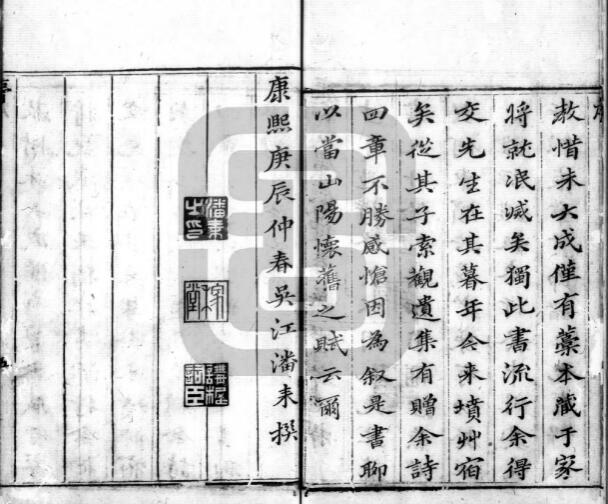 赦惜未大成僅有藁本藏于家
將就泯滅矣獨此書流行余得
交先生在其暮年今来墳艸宿
矣從其子索觀遺集有贈余詩
四章不勝感愴因為叙是書聊
以當山陽懷舊之賦云爾
康熙庚辰仲春吳江潘耒撰
潘耒之印